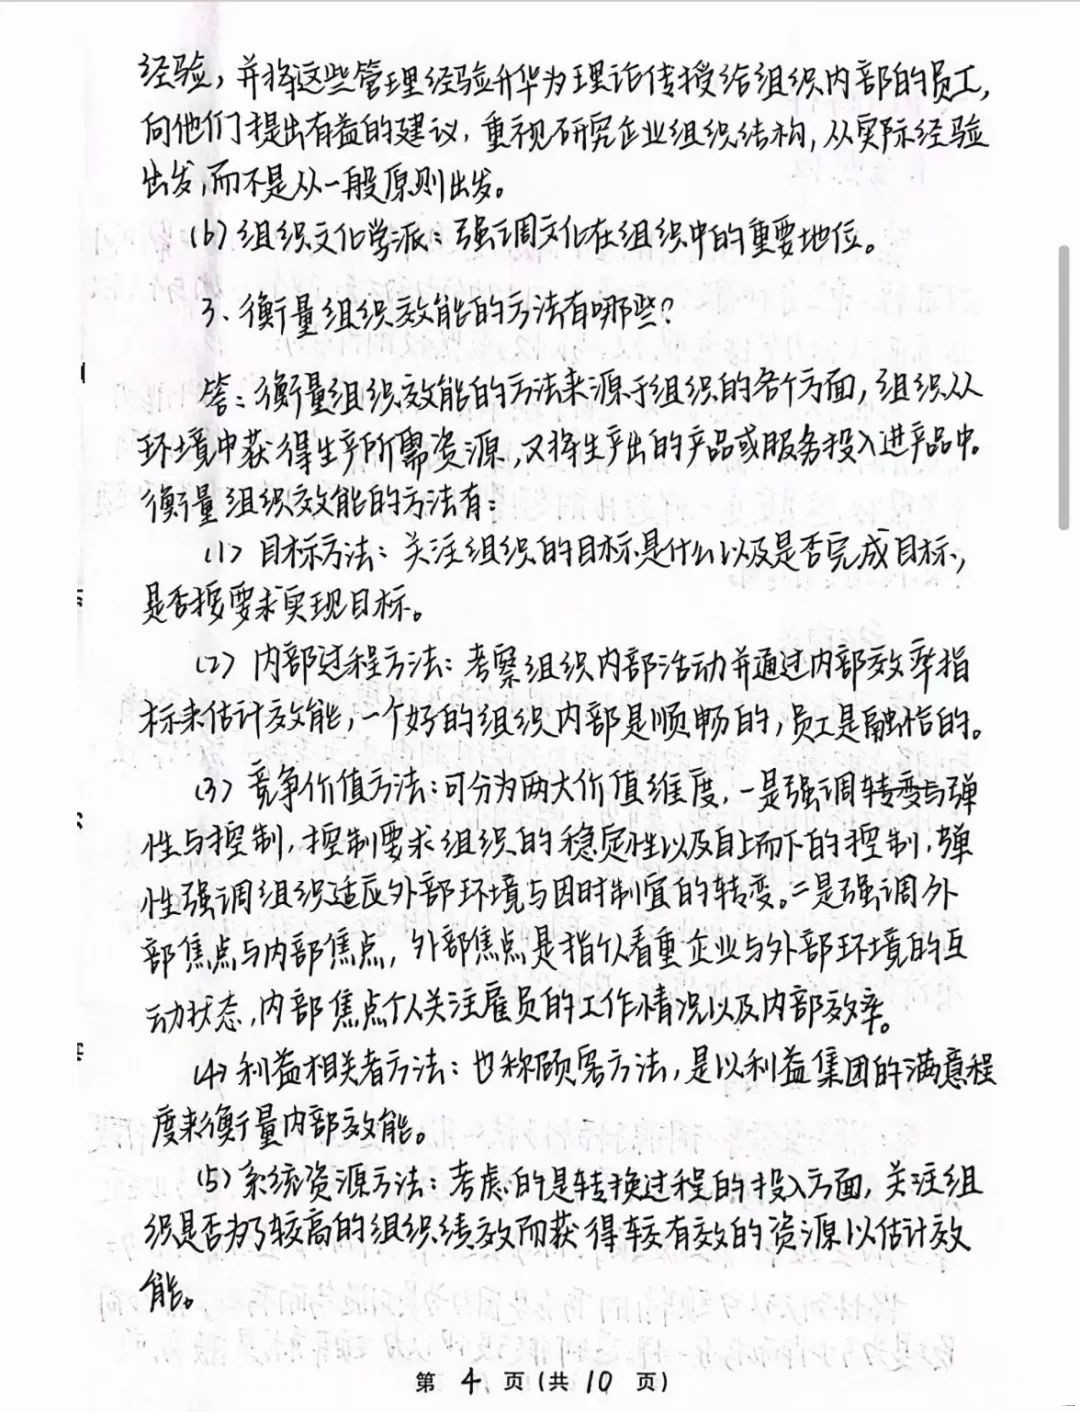 经验，并将这些管理经验升华为理论传授给组织内部的员工，
向他们提出有益的建议，重视研究企业组织结构，从实际经验
出发，而不是从一般原则出发。
(6) 组织文化学派：强调文化在组织中的重要地位。
3、衡量组织效能的方法有哪些？
答：衡量组织效能的方法来源于组织的各个方面，组织从
环境中获得生产所需资源，又将生产出的产品或服务投入进产品中。
衡量组织效能的方法有：
(1) 目标方法：关注组织的目标是什么以及是否完成目标，
是否按要求实现目标。
(2) 内部过程方法：考察组织内部活动并通过内部效率指
标来估计效能，一个好的组织内部是顺畅的，员工是融恰的。
(3) 竞争价值方法：可分为两大价值维度，一是强调转变与弹
性与控制，控制要求组织的稳定性以及自上而下的控制，弹
性强调组织适应外部环境与因时制宜的转变。二是强调外
部焦点与内部焦点，外部焦点是指个人看重企业与外部环境的互
动状态，内部焦点个人关注雇员的工作情况以及内部效率。
(4) 利益相关者方法：也称顾客方法，是以利益集团的满意程
度来衡量内部效能。
(5) 系统资源方法：考虑的是转换过程的投入方面，关注组
织是否为了较高的组织绩效而获得较有效的资源以估计效
能。
第 4 页（共 10 页）